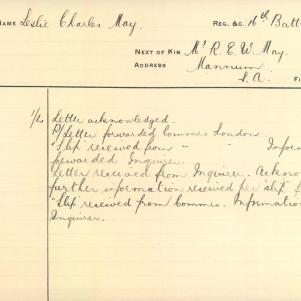 NAME Leslie Charles May. REG. &C. 16th Batt
NEXT OF KIN Mr R. E. W. May.
ADDRESS Mannum
S.A.
1/4 Letter acknowledged.
P/Letter forwarded Commrs London.
"Slip" received from " " Infor
forwarded Inquirer.
Letter received from Inquirer. Ackno
further information received per slip f
"Slip" received from Commrs. Information
Inquirer.